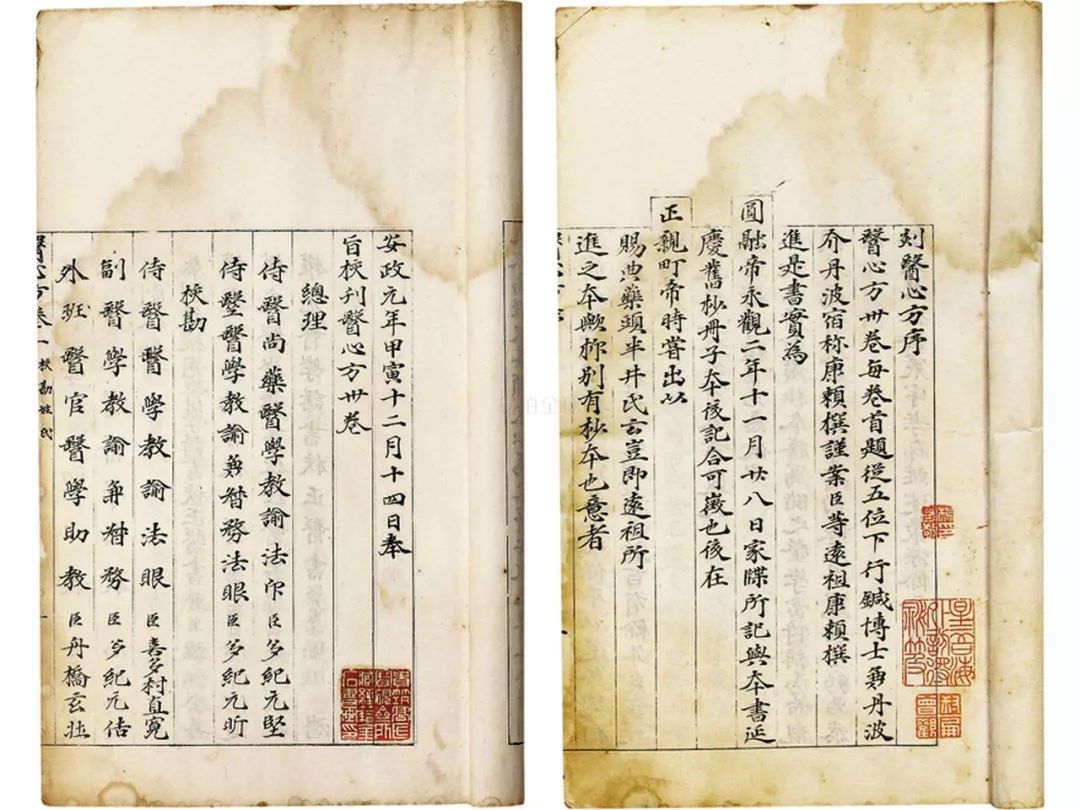 刻醫心方序
醫心方卅卷每卷首題從五位下行鍼博士兼丹波
介丹波宿祢康賴撰謹案臣等遠祖康賴撰
進是書實為
圓融帝永觀二年十一月廿八日家牒所記與本書延
慶舊抄冊子本後記合可徵也後在
正親町帝時嘗出以
賜典藥頭半井氏云豈即遠祖所
進之本歟抑別有抄本也意者
安政元年甲寅十二月十四日奉
旨校刊醫心方卅卷
總理
侍醫尚藥醫學教諭法印臣多紀元堅
侍醫醫學教諭兼督務法眼臣多紀元昕
校勘
侍醫醫學教諭法眼臣喜多村直寬
副醫學教諭兼督務臣多紀元佶
外班醫官醫學助教臣丹橋玄壯
醫心方卷一 校勘姓氏 一